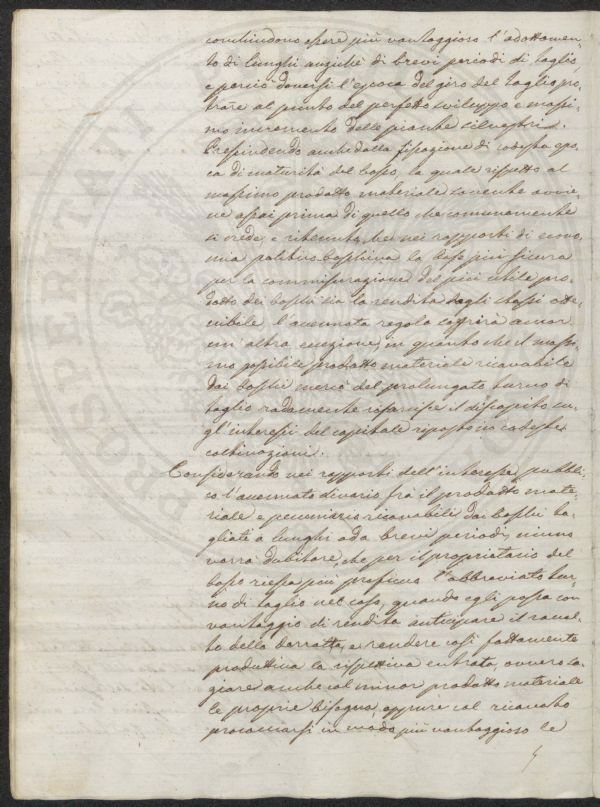 conchindono essere più vantaggioso l'adottamen¬
to di lunghi anzichè di brevi periodi di taglio,
e perciò doversi l'epoca del giro del taglio pro¬
trare al punto del perfetto sviluppo e massi¬
mo incremento delle piante silvestri.
Prescindendo anche dalla fissazione di codesta epo¬
ca di maturità del bosco, la quale rispetto al
massimo prodotto materiale sovente avvie¬
ne assai prima di quello che comunemente
si crede, è ritenuto, che nei rapporti di econo¬
mia politico boschiva la base più sicura
per la commisurazione del più utile pro¬
dotto dei boschi sia la rendita dagli stessi otte¬
nibile, l'accennata regola soffrirà ancor
un'altra eccezione, in quanto che il massi¬
mo possibile prodotto materiale ricavabile
dai boschi mercè del prolungato turno di
taglio radamente risarcisce il discapito su¬
gl'interessi del capitale riposto in codeste
coltivazioni.
Considerando nei rapporti dell'interesse pubbli¬
co l'accennato divario fra il prodotto mate¬
riale e pecuniario ricavabile dai boschi ta¬
gliati a lunghi od a brevi periodi, niuno
vorrà dubitare, che per il proprietario del
bosco riesca più proficuo l'abbreviato tur¬
no di taglio nel caso, quando egli possa con
vantaggio di rendita anticipare il raccol¬
to della derrata, e rendere così fattamente
produttiva la rispettiva entrata, ovvero sa¬
ziare anche col minor prodotto materiale
le proprie bisogna, oppure col ricavato
procacciarsi in modo più vantaggioso le
PROSPERITATI